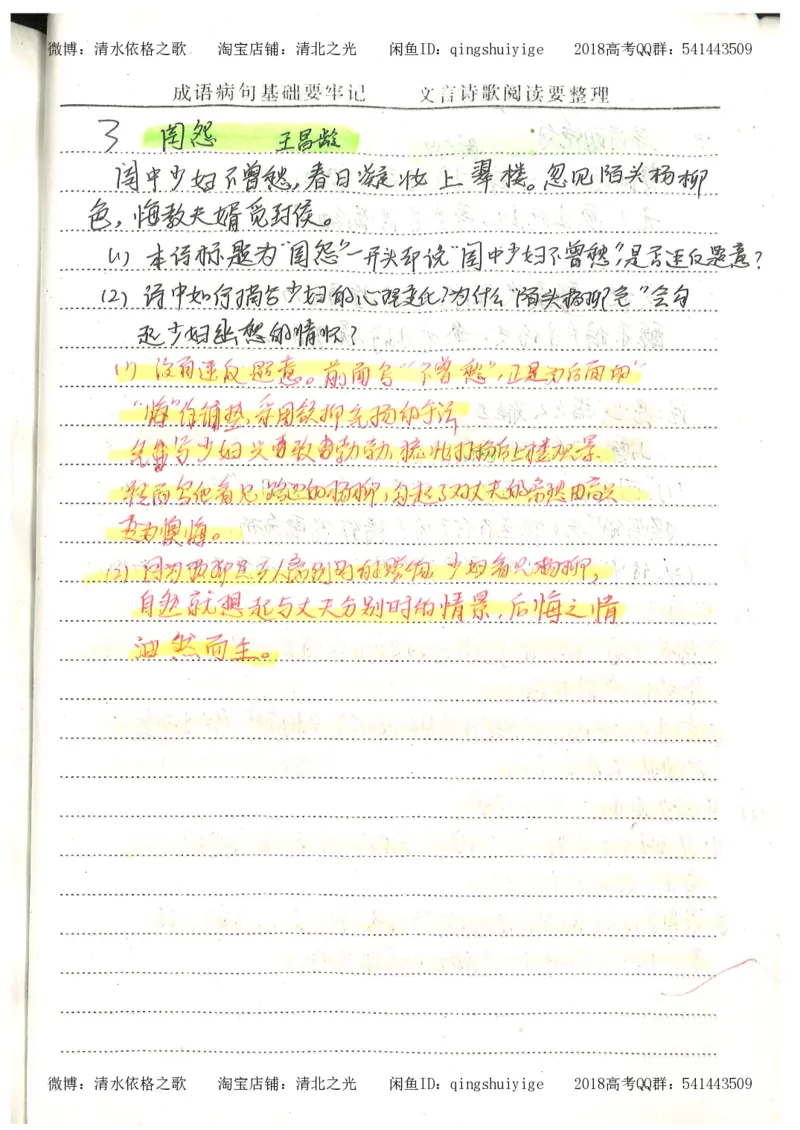 微博：清水依格之歌 淘宝店铺：清北之光 闲鱼ID：qingshuiyige 2018高考QQ群：541443509
成语病句基础要牢记 文言诗歌阅读要整理
3 闺怨 王昌龄
闺中少妇不曾愁，春日凝妆上翠楼。忽见陌头杨柳
色，悔教夫婿觅封侯。
(1) 本诗标题为“闺怨”一开头却说“闺中少妇不曾愁”，是否违反题意？
(2) 诗中如何描写少妇的心理变化？为什么“陌头杨柳色”会勾
起少妇幽愁的情怀？
(1) 没有违反题意。前面写“不曾愁”，正是为后面的“
“悔”作铺垫，采用欲抑先扬的手法
先写少妇兴致勃勃，梳妆打扮后上楼观景
然而当她看见路边的杨柳，勾起了对丈夫的思念由高兴
变为懊悔。
(2) 因为 少妇看见杨柳，
自然就想起与丈夫分别时的情景，后悔之情
油然而生。
微博：清水依格之歌 淘宝店铺：清北之光 闲鱼ID：qingshuiyige 2018高考QQ群：541443509